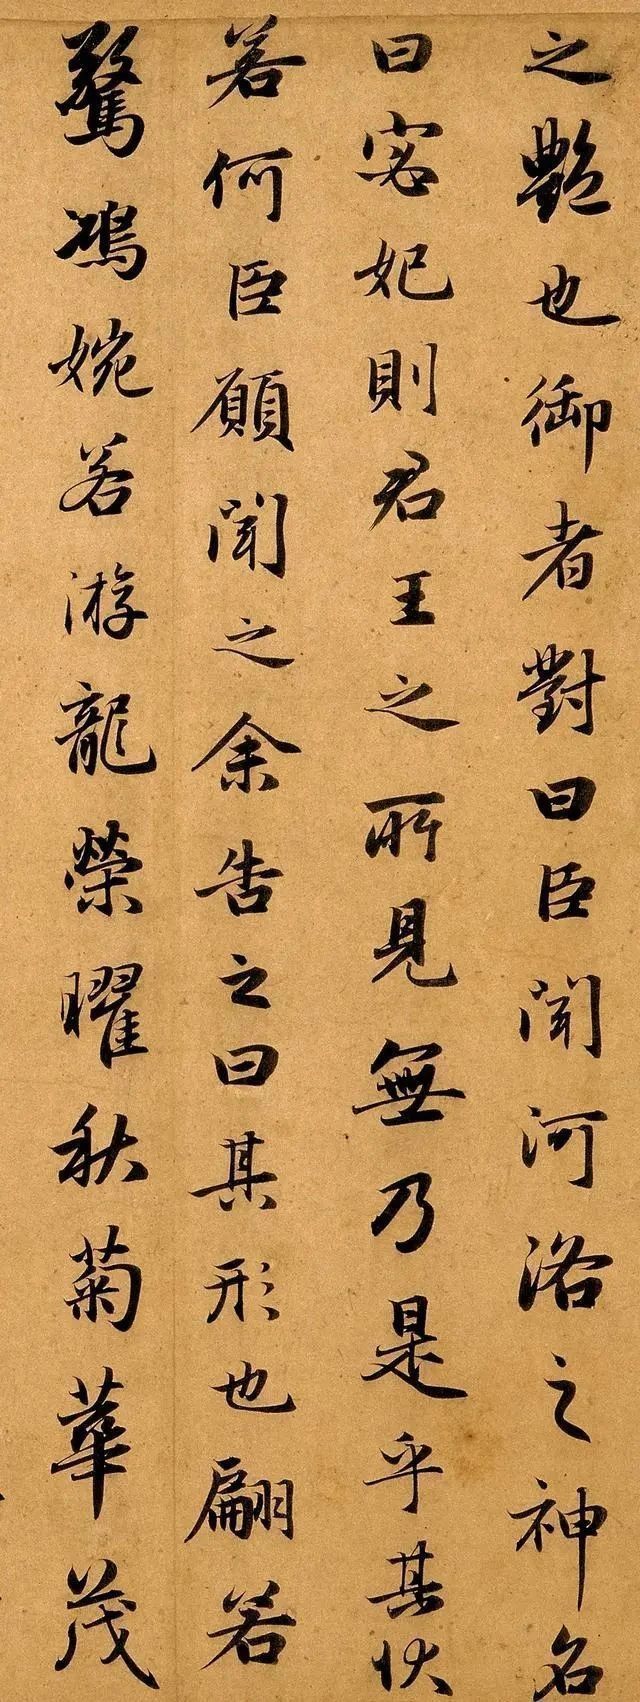 之艷也御者對曰臣聞河洛之神名
曰宓妃則君王之所見無乃是乎其状
若何臣願聞之余告之曰其形也翩若
驚鴻婉若游龍榮曜秋菊華茂